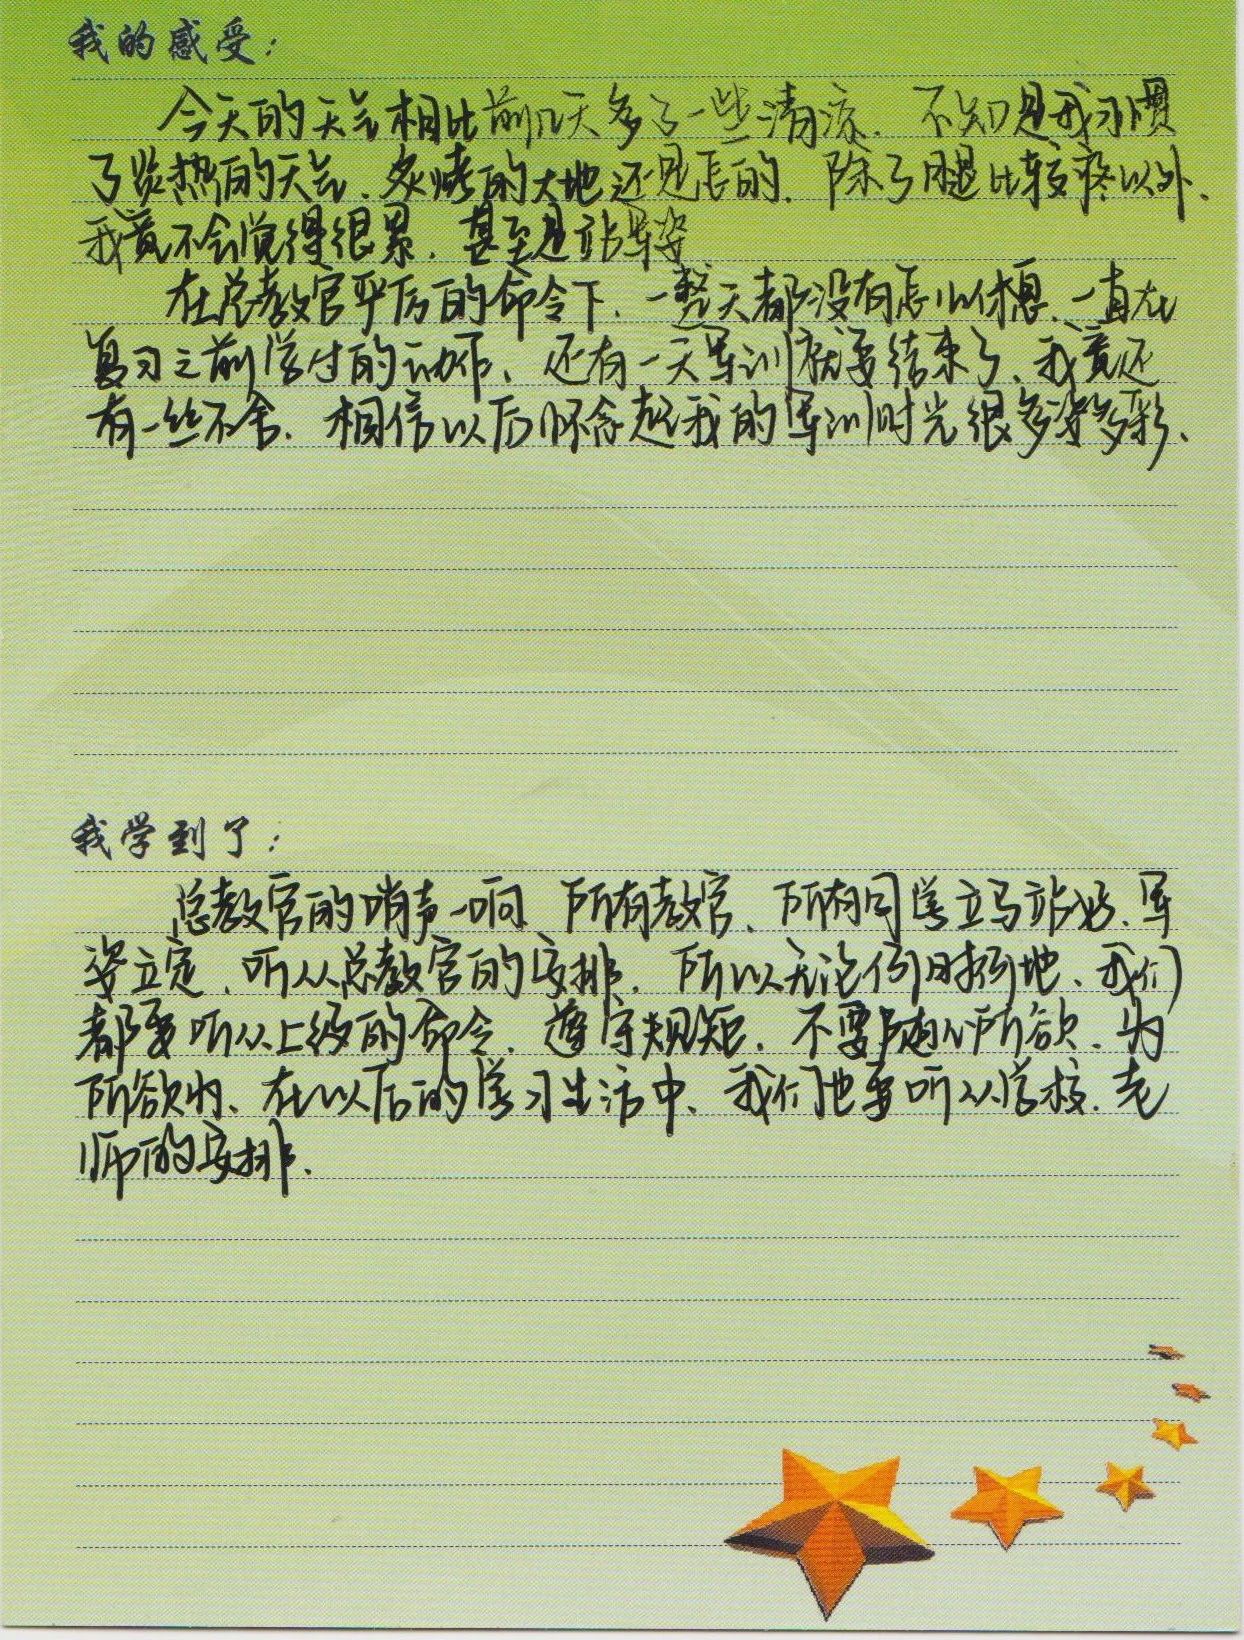 我的感受：
今天的天气相比前几天多了一些清凉.不知是我习惯
了炎热的天气、炙烤的大地还是怎的.除了腿比较疼以外、
我竟不会觉得很累.甚至是站军姿
在总教官平厉的命令下.一整天都没有怎么休息.一直在
复习之前学过的动作、还有一天军训就要结束了、我竟还
有一丝不舍.相信以后怀念起我的军训时光很多姿多彩、
我学到了：
总教官的哨声一响 所有教官、所有同学立马站好、军
姿立定、听从总教官的安排.所以无论何时何地、我们
都要听从上级的命令.遵守规矩.不要随心所欲、为
所欲为、在以后的学习生活中、我们也要听从学校.老
师的安排.